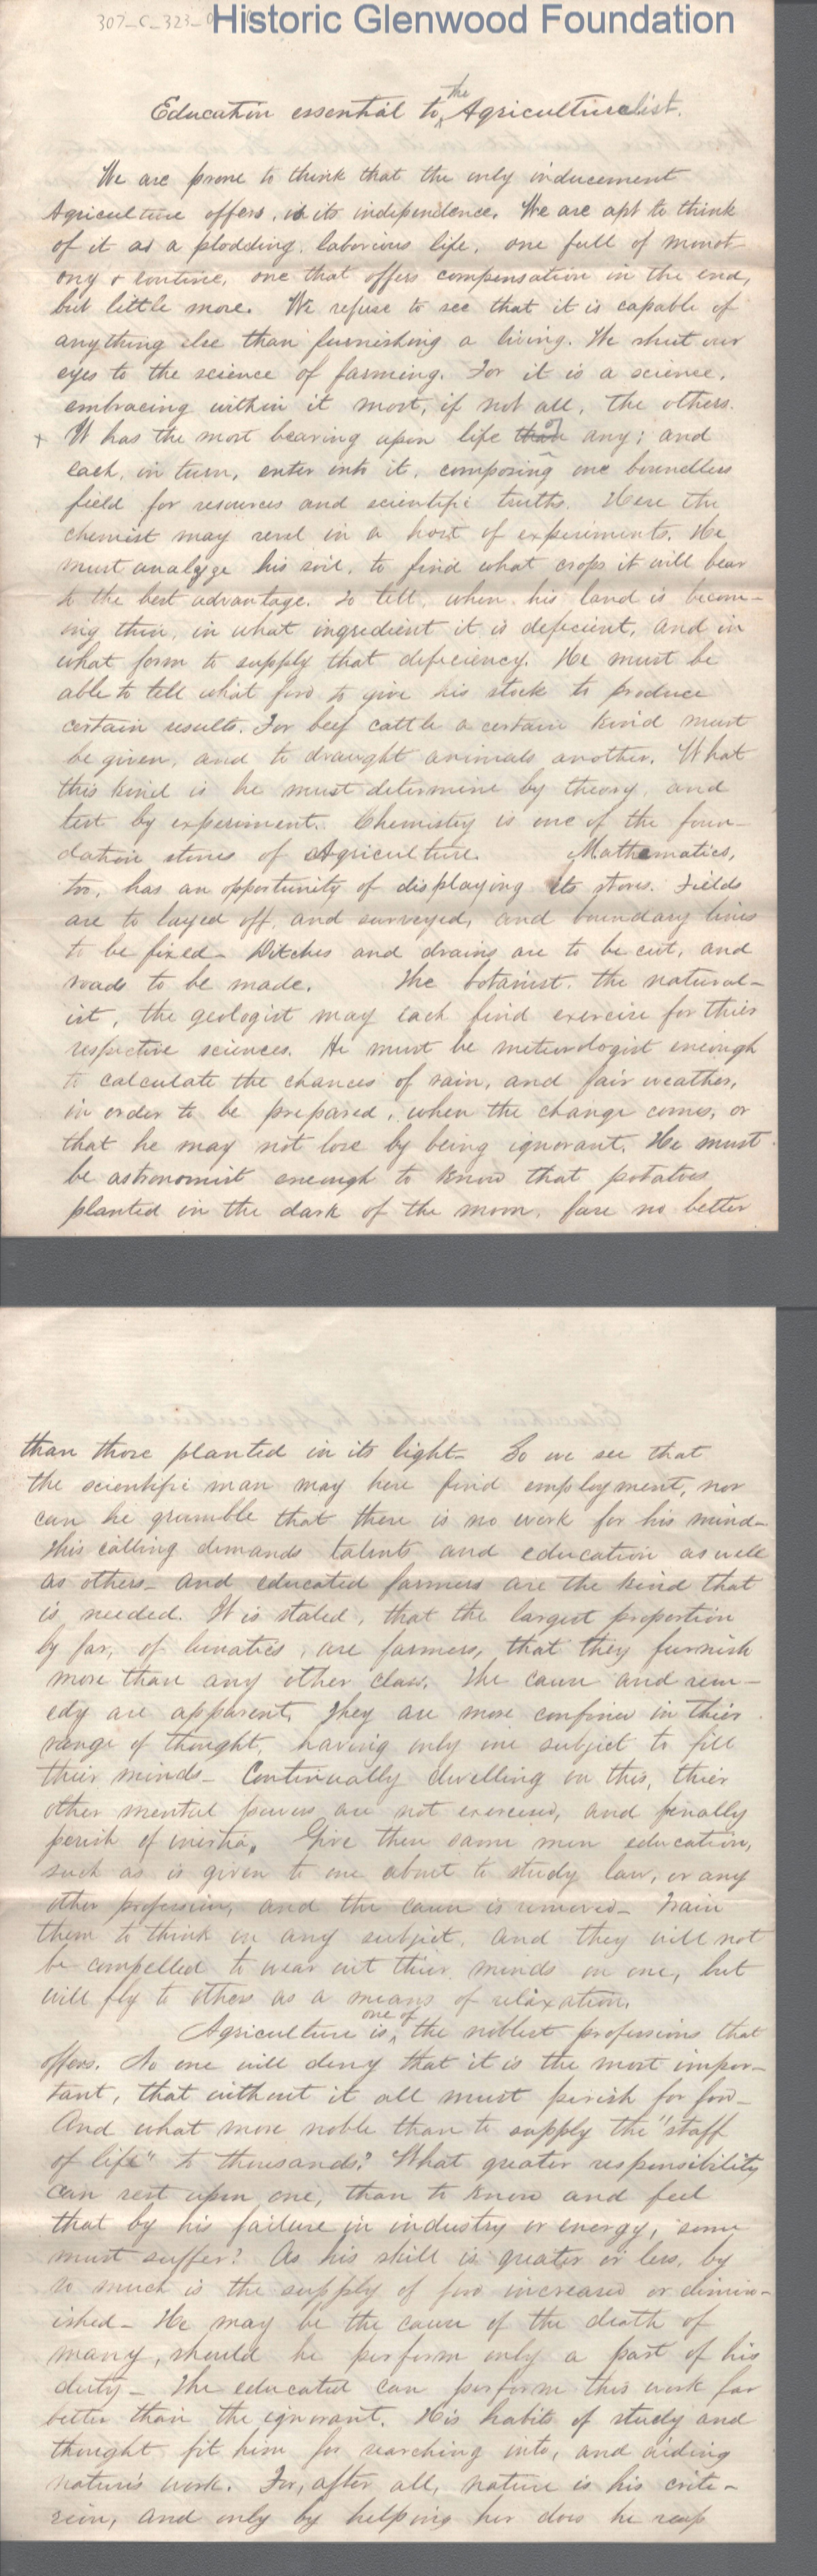 307-C-323-0
Historic Glenwood Foundation
Education essential to the Agriculturalist.
We are prone to think that the only inducement
Agriculture offers, is its independence. We are apt to think
of it as a plodding, laborious life, one full of monot-
ony & routine, one that offers compensation in the end,
but little more. We refuse to see that it is capable of
anything else than furnishing a living. We shut our
eyes to the science of farming. For it is a science,
embracing within it most, if not all, the others.
+ It has the most bearing upon life than of any; and
each, in turn, enter into it, composing one boundless
field for resources and scientific truths. Here the
chemist may revel in a host of experiments. He
must analyze his soil, to find what crops it will bear
to the best advantage. To tell, when his land is becom-
ing thin, in what ingredient it is deficient, and in
what form to supply that deficiency. He must be
able to tell what food to give his stock to produce
certain results. For beef cattle a certain kind must
be given, and to draught animals another. What
this kind is he must determine by theory, and
test by experiment. Chemistry is one of the foun-
dation stones of Agriculture. Mathematics,
too, has an opportunity of displaying its stores. Fields
are to layed off, and surveyed, and boundary lines
to be fixed - Ditches and drains are to be cut, and
roads to be made. The botanist, the natural-
ist, the geologist may each find exercise for thier
respective sciences. He must be meteorologist enough
to calculate the chances of rain, and fair weather,
in order to be prepared, when the change comes, or
that he may not lose by being ignorant. He must
be astronomist enough to know that potatoes
planted in the dark of the moon, fare no better
than those planted in its light - So we see that
the scientific man may here find employment, nor
can he grumble that there is no work for his mind -
This calling demands talents and education as well
as others - and educated farmers are the kind that
is needed. It is stated, that the largest proportion
by far, of lunatics, are farmers, that they furnish
more than any other class. The cause and rem-
edy are apparent. They are more confined in thier
range of thought, having only one subject to fill
thier minds - Continually dwelling on this, thier
other mental powers are not exercised, and finally
perish of inertia. Give these same men education,
such as is given to one about to study law, or any
other profession, and the cause is removed - Train
them to think on any subject, and they will not
be compelled to wear out thier minds on one, but
will fly to others as a means of relaxation.
Agriculture is one of the noblest professions that
offers. No one will deny that it is the most impor-
tant, that without it all must perish for food -
And what more noble than to supply the "staff
of life" to thousands? What greater responsibility
can rest upon one, than to know and feel
that by his failure in industry or energy, some
must suffer? As his skill is greater or less, by
so much is the supply of food increased or dimin-
ished - He may be the cause of the death of
many, should he perform only a part of his
duty - The educated can perform this work far
better than the ignorant. His habits of study and
thought fit him for searching into, and aiding
nature's work. For, after all, nature is his crite-
rion, and only by helping her does he reap